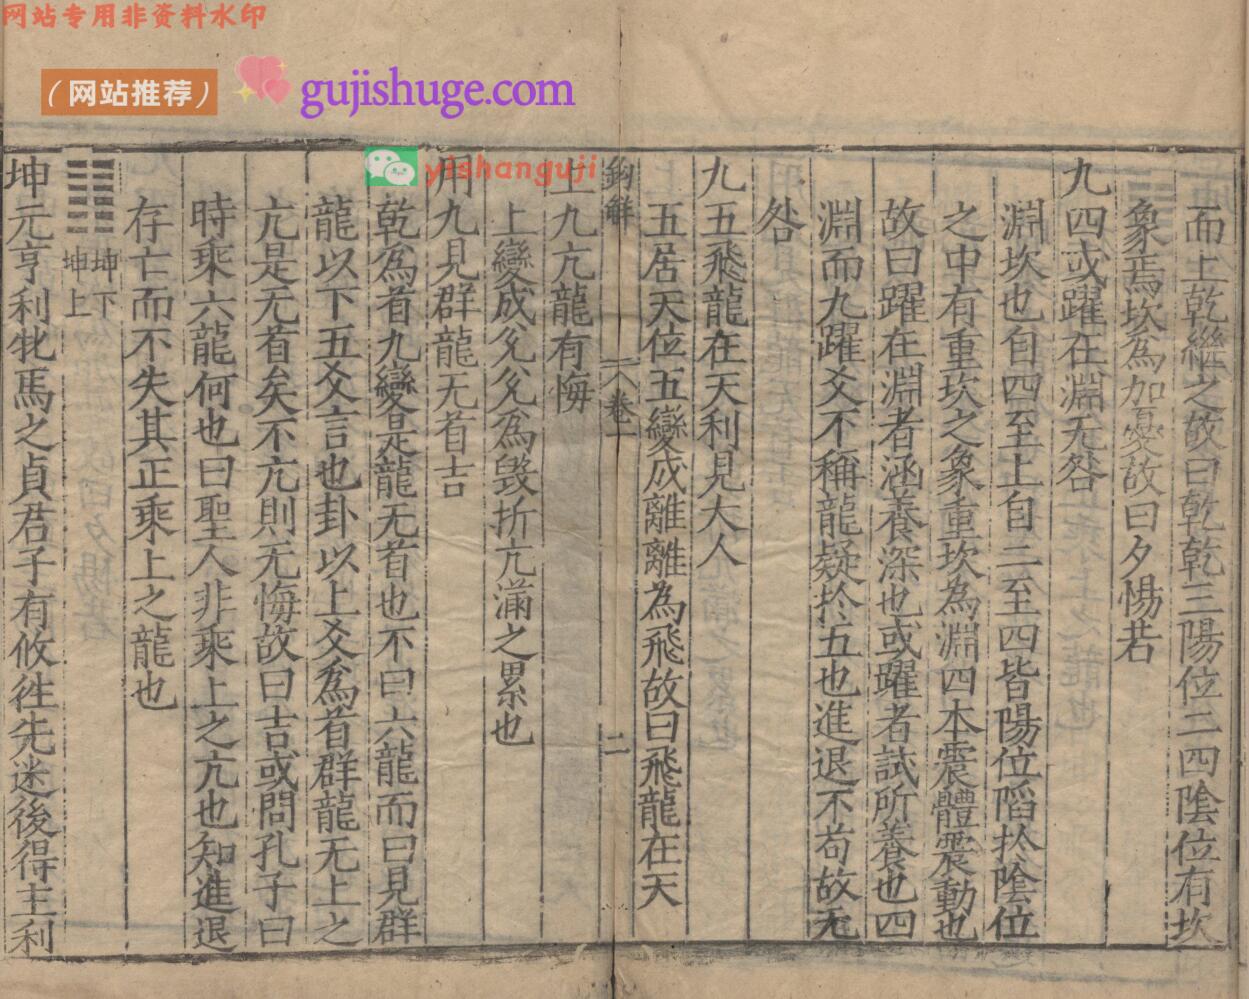 网站专用非资料水印
（网站推荐）
gujishuge.com
yishanguji
而上乾繼之故曰乾乾三陽位二四陰位有坎
象焉坎爲加憂故曰夕惕若
九四或躍在淵无咎
淵坎也自四至上自二至四皆陽位陷扵陰位
之中有重坎之象重坎為淵四本震體震動也
故曰躍在淵者涵養深也或躍者試所養也四
淵而九躍爻不稱龍疑扵五也進退不苟故无
咎
九五飛龍在天利見大人
五居天位五變成離離為飛故曰飛龍在天
鈎解
卷一
二
上九亢龍有悔
上變成兊兊爲毀折亢滿之累也
用九見群龍无首吉
乾爲首九變是龍无首也不曰六龍而曰見群
龍以下五爻言也卦以上爻爲首群龍无上之
亢是无首矣不亢則无悔故曰吉或問孔子曰
時乘六龍何也曰聖人非乘上之亢也知進退
存亡而不失其正乘上之龍也
坤下
坤上
坤元亨利牝馬之貞君子有攸徃先迷後得主利